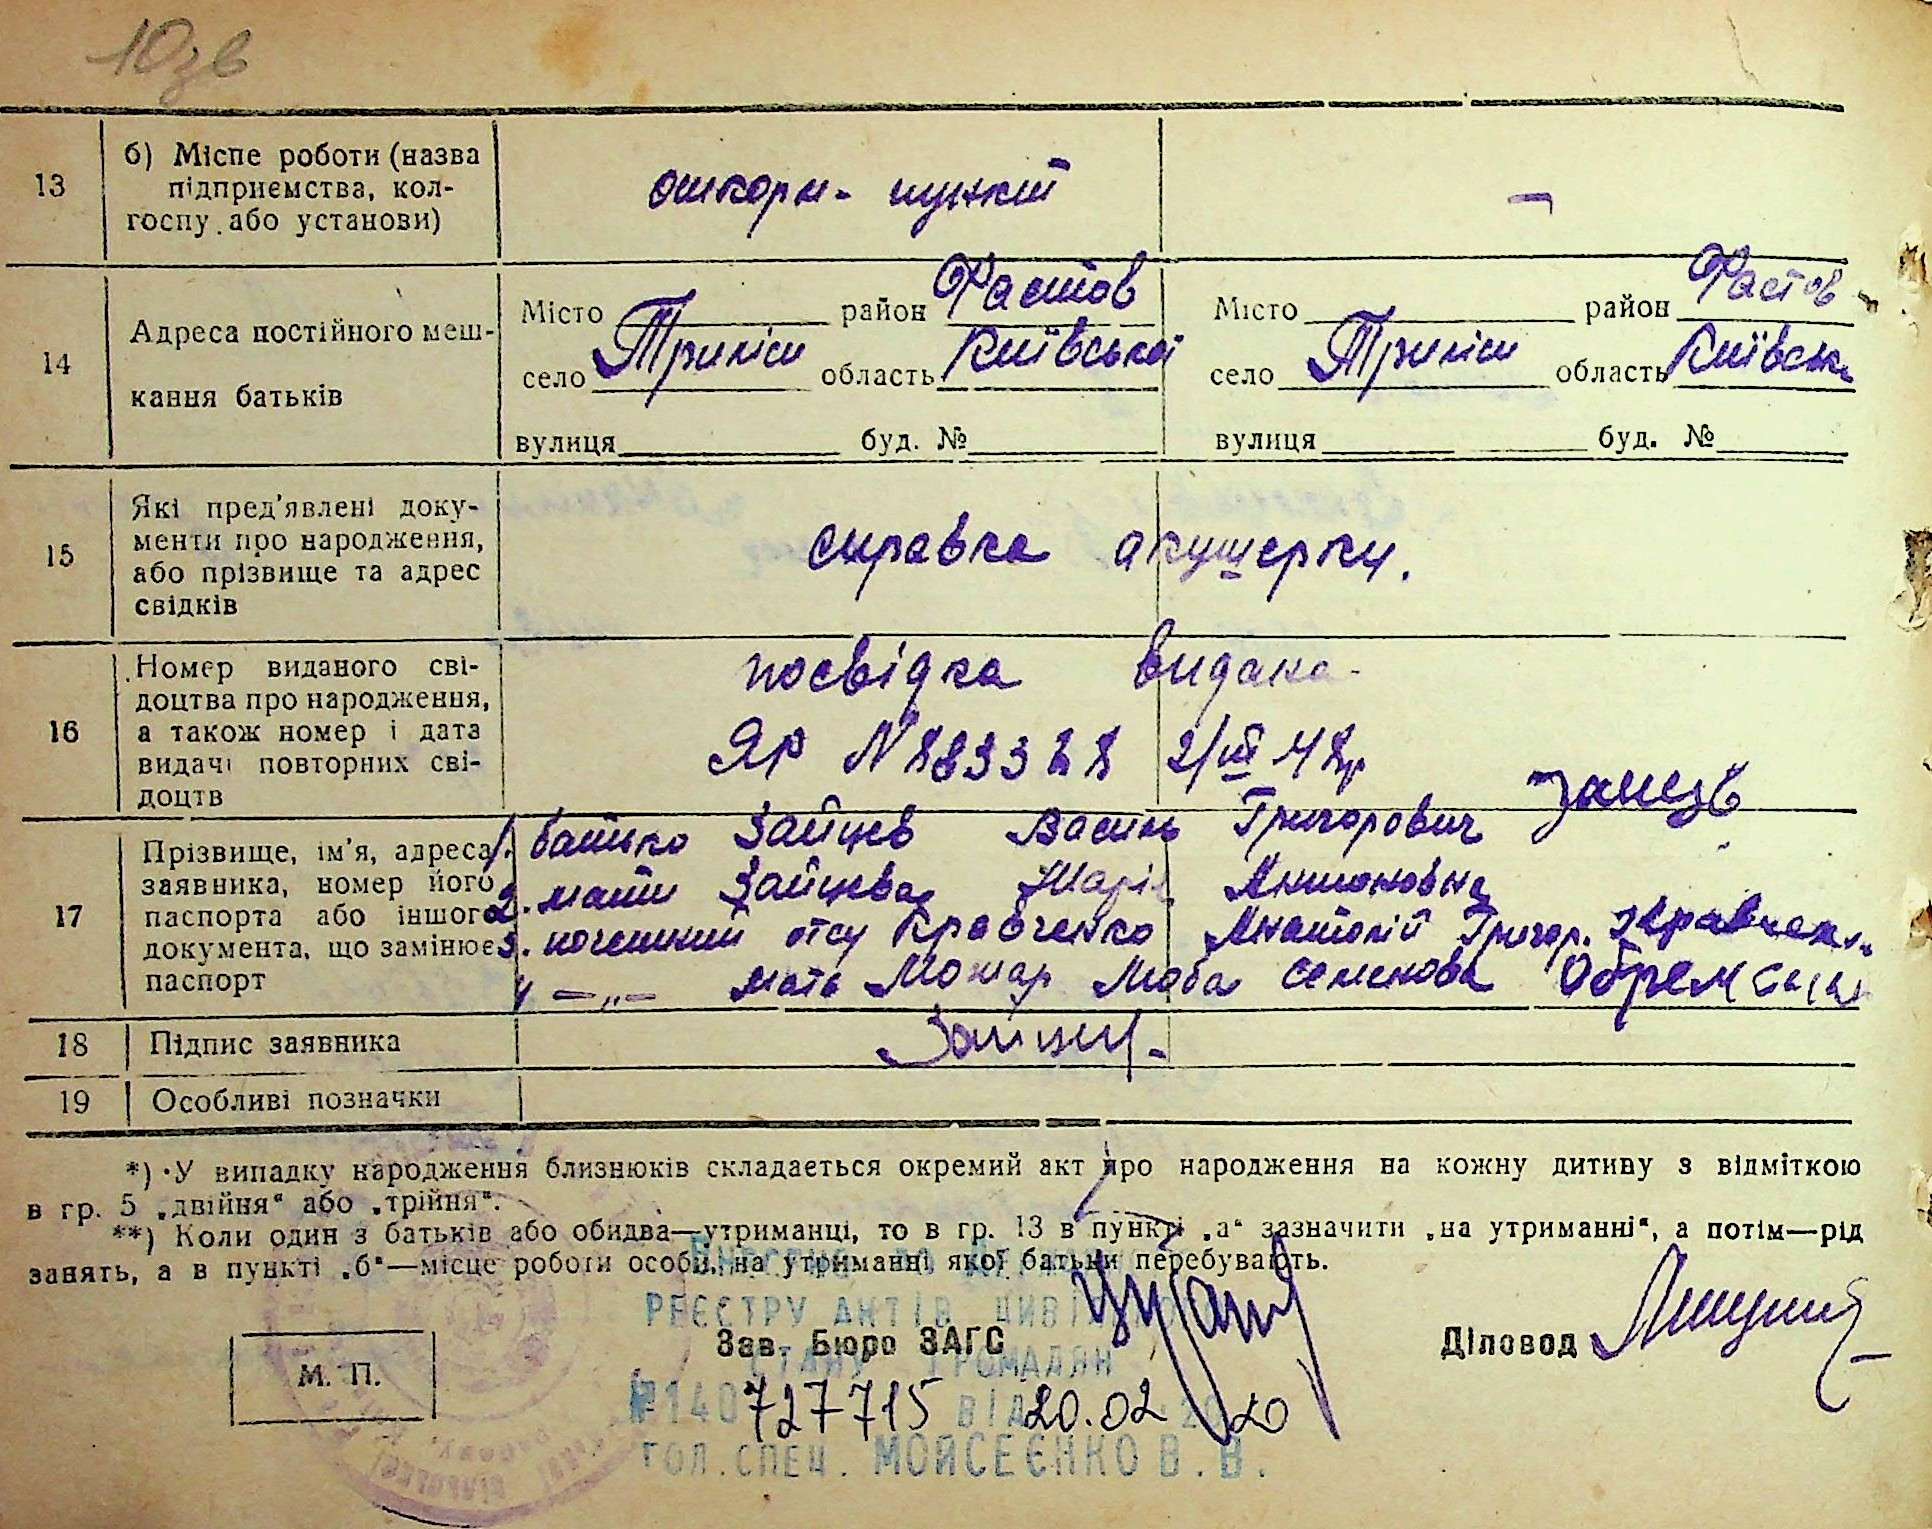 10зв
13
б) Місце роботи (назва
підприємства, кол-
госпу або установи)
пункт
—
14
Адреса постійного меш-
кання батьків
Місто район Фастов
село Триліси область Київської
вулиця буд. №
Місто район Фастов
село Триліси область Київськ.
вулиця буд. №
15
Які пред'явлені доку-
менти про народження,
або прізвище та адрес
свідків
справка акушерки.
16
Номер виданого сві-
доцтва про народження,
а також номер і дата
видачі повторних сві-
доцтв
посвідка видана
ЯР N 883328 2/III 48р
17
Прізвище, ім'я, адреса
заявника, номер його
паспорта або іншого
документа, що замінює
паспорт
1. батько Зайцев Василь Григорович
2. мати Зайцева Марія Антоновна
3. Кравченко Анатолій Григор.
4 —„— мать Семенова
18
Підпис заявника
19
Особливі позначки
*) У випадку народження близнюків складається окремий акт про народження на кожну дитину з відміткою
в гр. 5 „двійня“ або „трійня“.
**) Коли один з батьків або обидва—утриманці, то в гр. 13 в пункті „а“ зазначити „на утриманні“, а потім—рід
занять, а в пункті „б“—місце роботи особи, на утриманні якої батьки перебувають.
РЕЄСТРУ АКТІВ ЦИВІЛЬНОГО
Зав. Бюро ЗАГС
Діловод
СТАНУ ГРОМАДЯН
М. П.
№140 727715 ВІД 20.02 2020
ГОЛ.СПЕЦ. МОЙСЕЄНКО В.В.